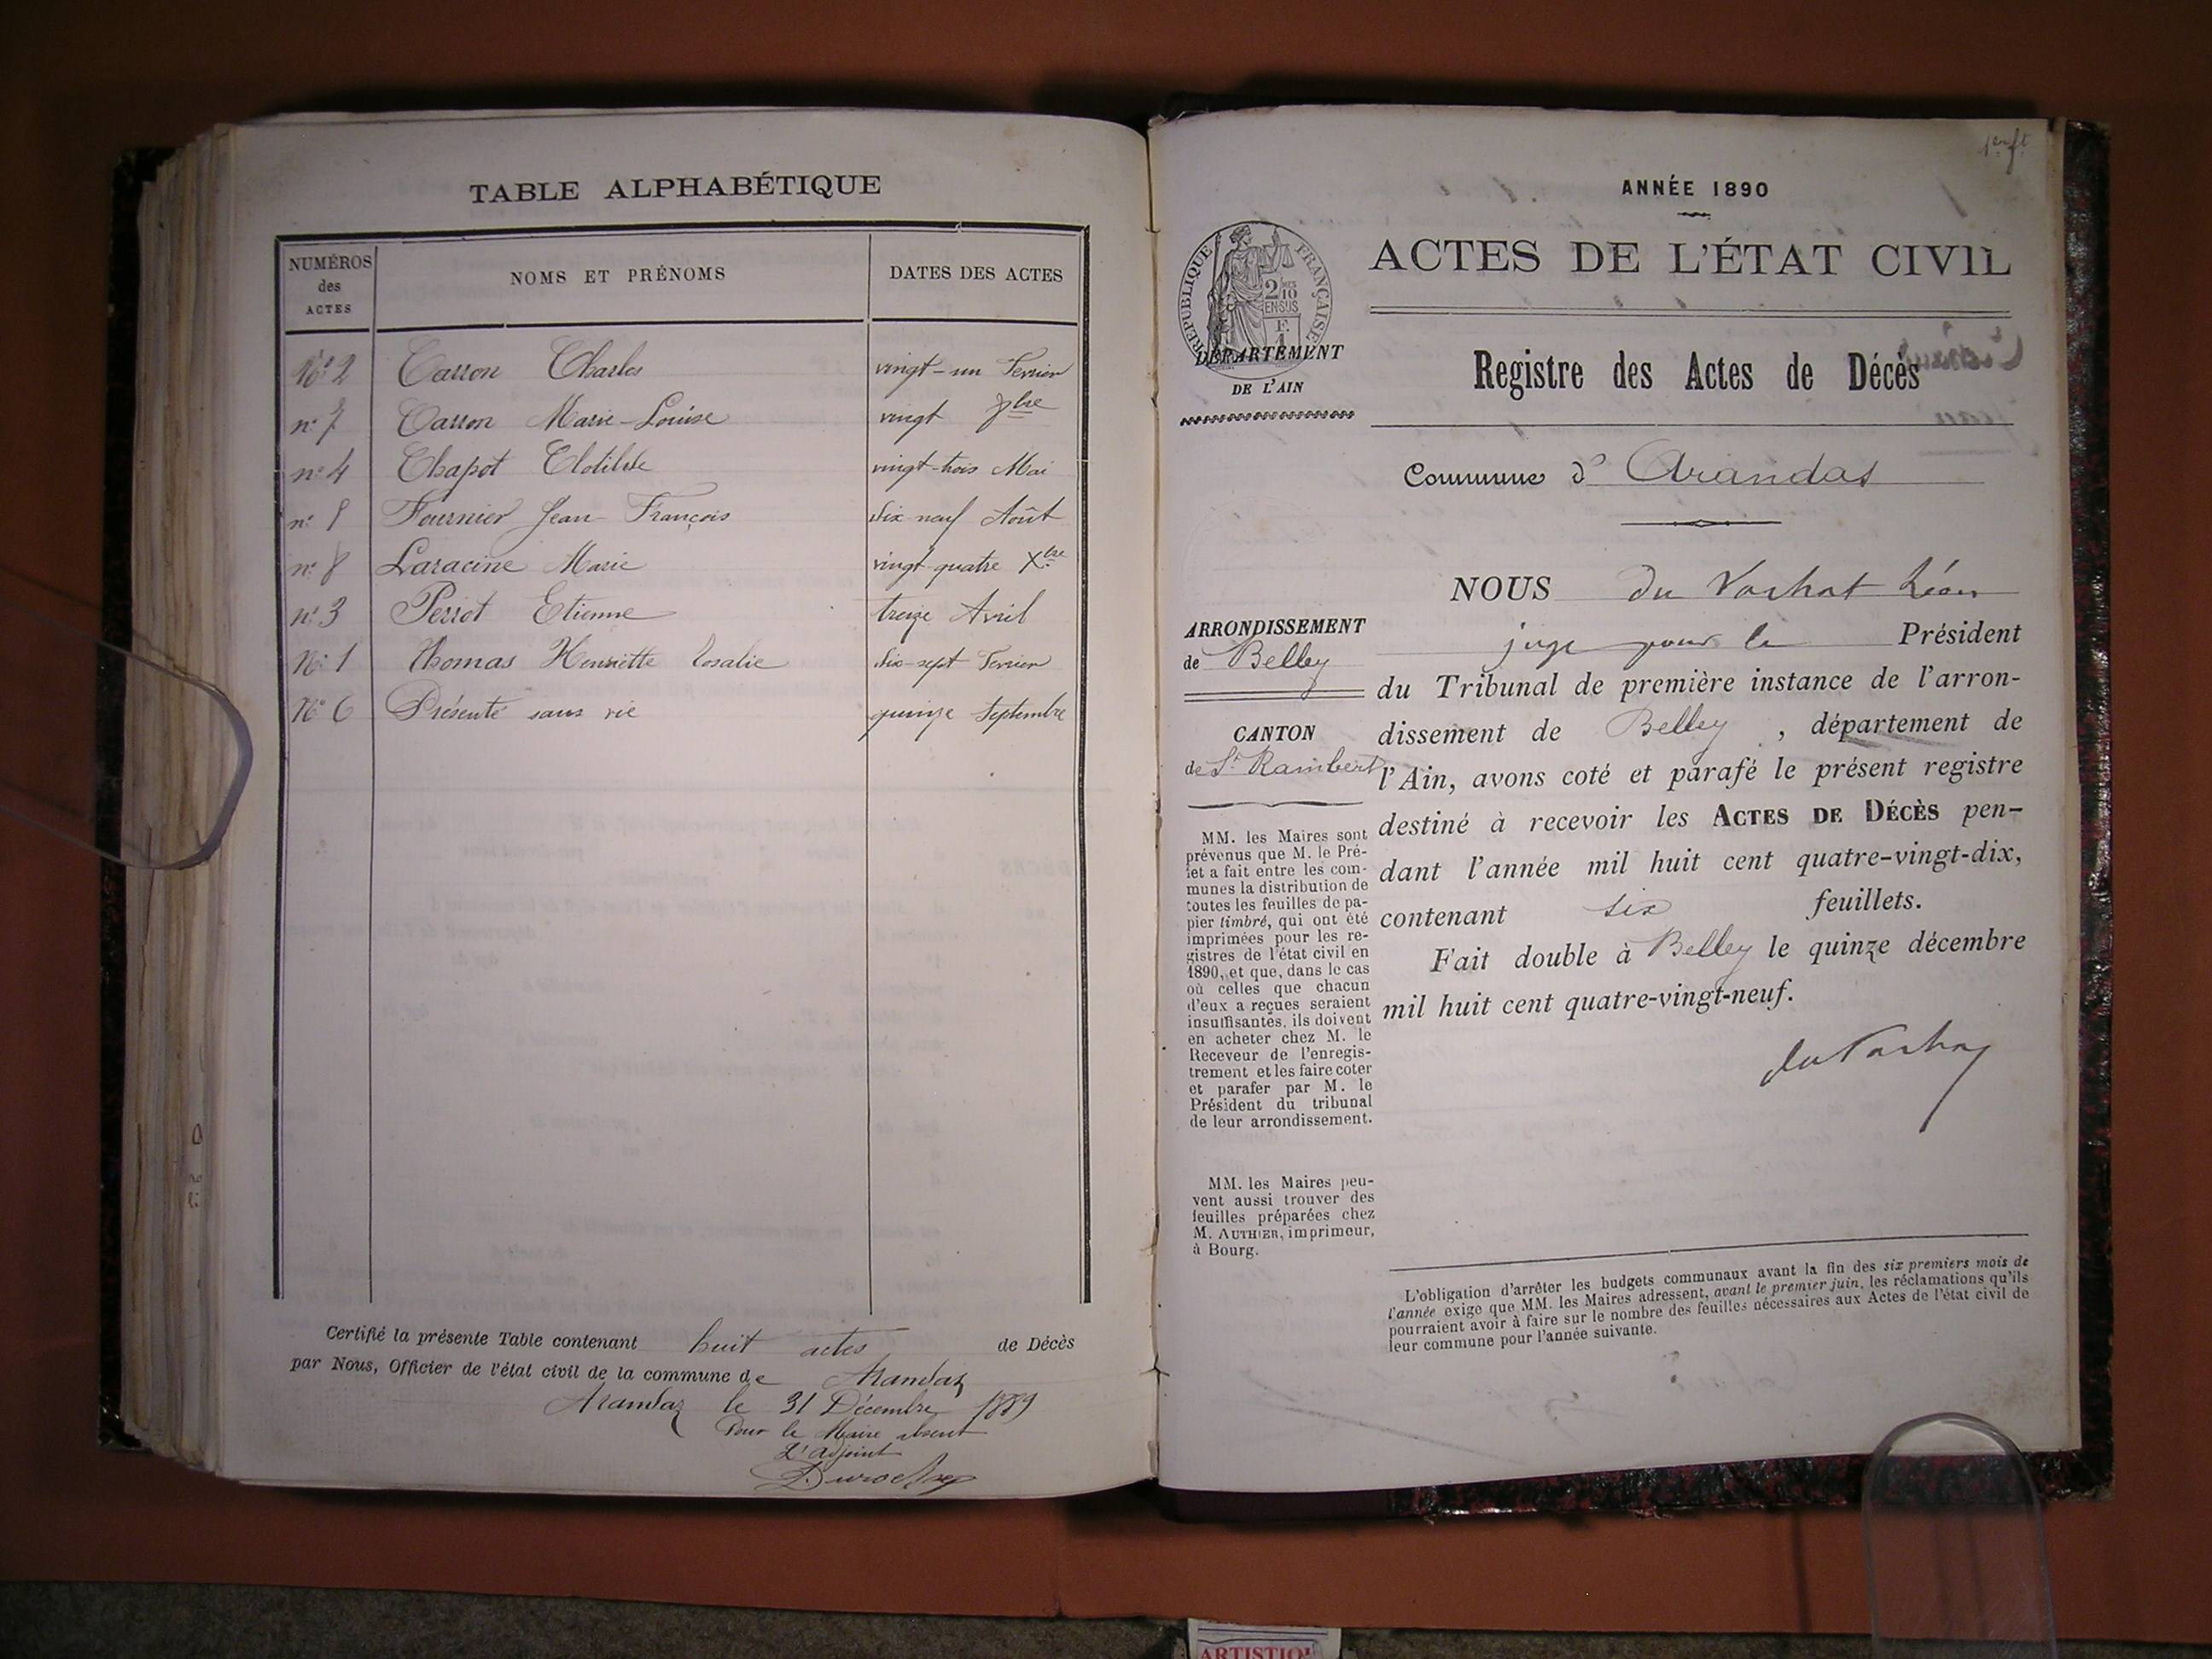 TABLE ALPHABÉTIQUE
NUMÉROS des ACTES
NOMS ET PRÉNOMS
DATES DES ACTES
N° 2 Carron Charles vingt-un Fevrier
n° 7 Carron Marie-Louise vingt
n° 4 Chapot Clotilde vingt-trois Mai
n° Fournier Jean François dix neuf Août
n° 8 Laracine Marie vingt-quatre Xbre
n° 3 Perrot Etienne treize Avril
N° 1 Thomas Henriette Rosalie dix-sept Fevrier
N° 6 Présenté sans vie quinze Septembre
Certifié la présente Table contenant huit actes de Décès
par Nous, Officier de l'état civil de la commune de Arandaz
Arandaz le 31 Décembre 1889
Pour le Maire absent
L'adjoint
1er ft
ANNÉE 1890
ACTES DE L'ÉTAT CIVIL
RÉPUBLIQUE FRANÇAISE
2/10 EN SUS
DÉPARTEMENT
DE L'AIN
Registre des Actes de Décès
Commune d' Arandas
ARRONDISSEMENT
de Belley
CANTON
de St Rambert
MM. les Maires sont
prévenus que M. le Pré-
fet a fait entre les com-
munes la distribution de
toutes les feuilles de pa-
pier timbré, qui ont été
imprimées pour les re-
gistres de l'état civil en
1890, et que, dans le cas
où celles que chacun
d'eux a reçues seraient
insuffisantes, ils doivent
en acheter chez M. le
Receveur de l'enregis-
trement et les faire coter
et parafer par M. le
Président du tribunal
de leur arrondissement.
MM. les Maires peu-
vent aussi trouver des
feuilles préparées chez
M. AUTHIER, imprimeur,
à Bourg.
NOUS du Vachat Léon
juge pour le Président
du Tribunal de première instance de l'arron-
dissement de Belley, département de
l'Ain, avons coté et parafé le présent registre
destiné à recevoir les ACTES DE DÉCÈS pen-
dant l'année mil huit cent quatre-vingt-dix,
contenant six feuillets.
Fait double à Belley le quinze décembre
mil huit cent quatre-vingt-neuf.
du Vachat
L'obligation d'arrêter les budgets communaux avant la fin des six premiers mois de
l'année exige que MM. les Maires adressent, avant le premier juin, les réclamations qu'ils
pourraient avoir à faire sur le nombre des feuilles nécessaires aux Actes de l'état civil de
leur commune pour l'année suivante.